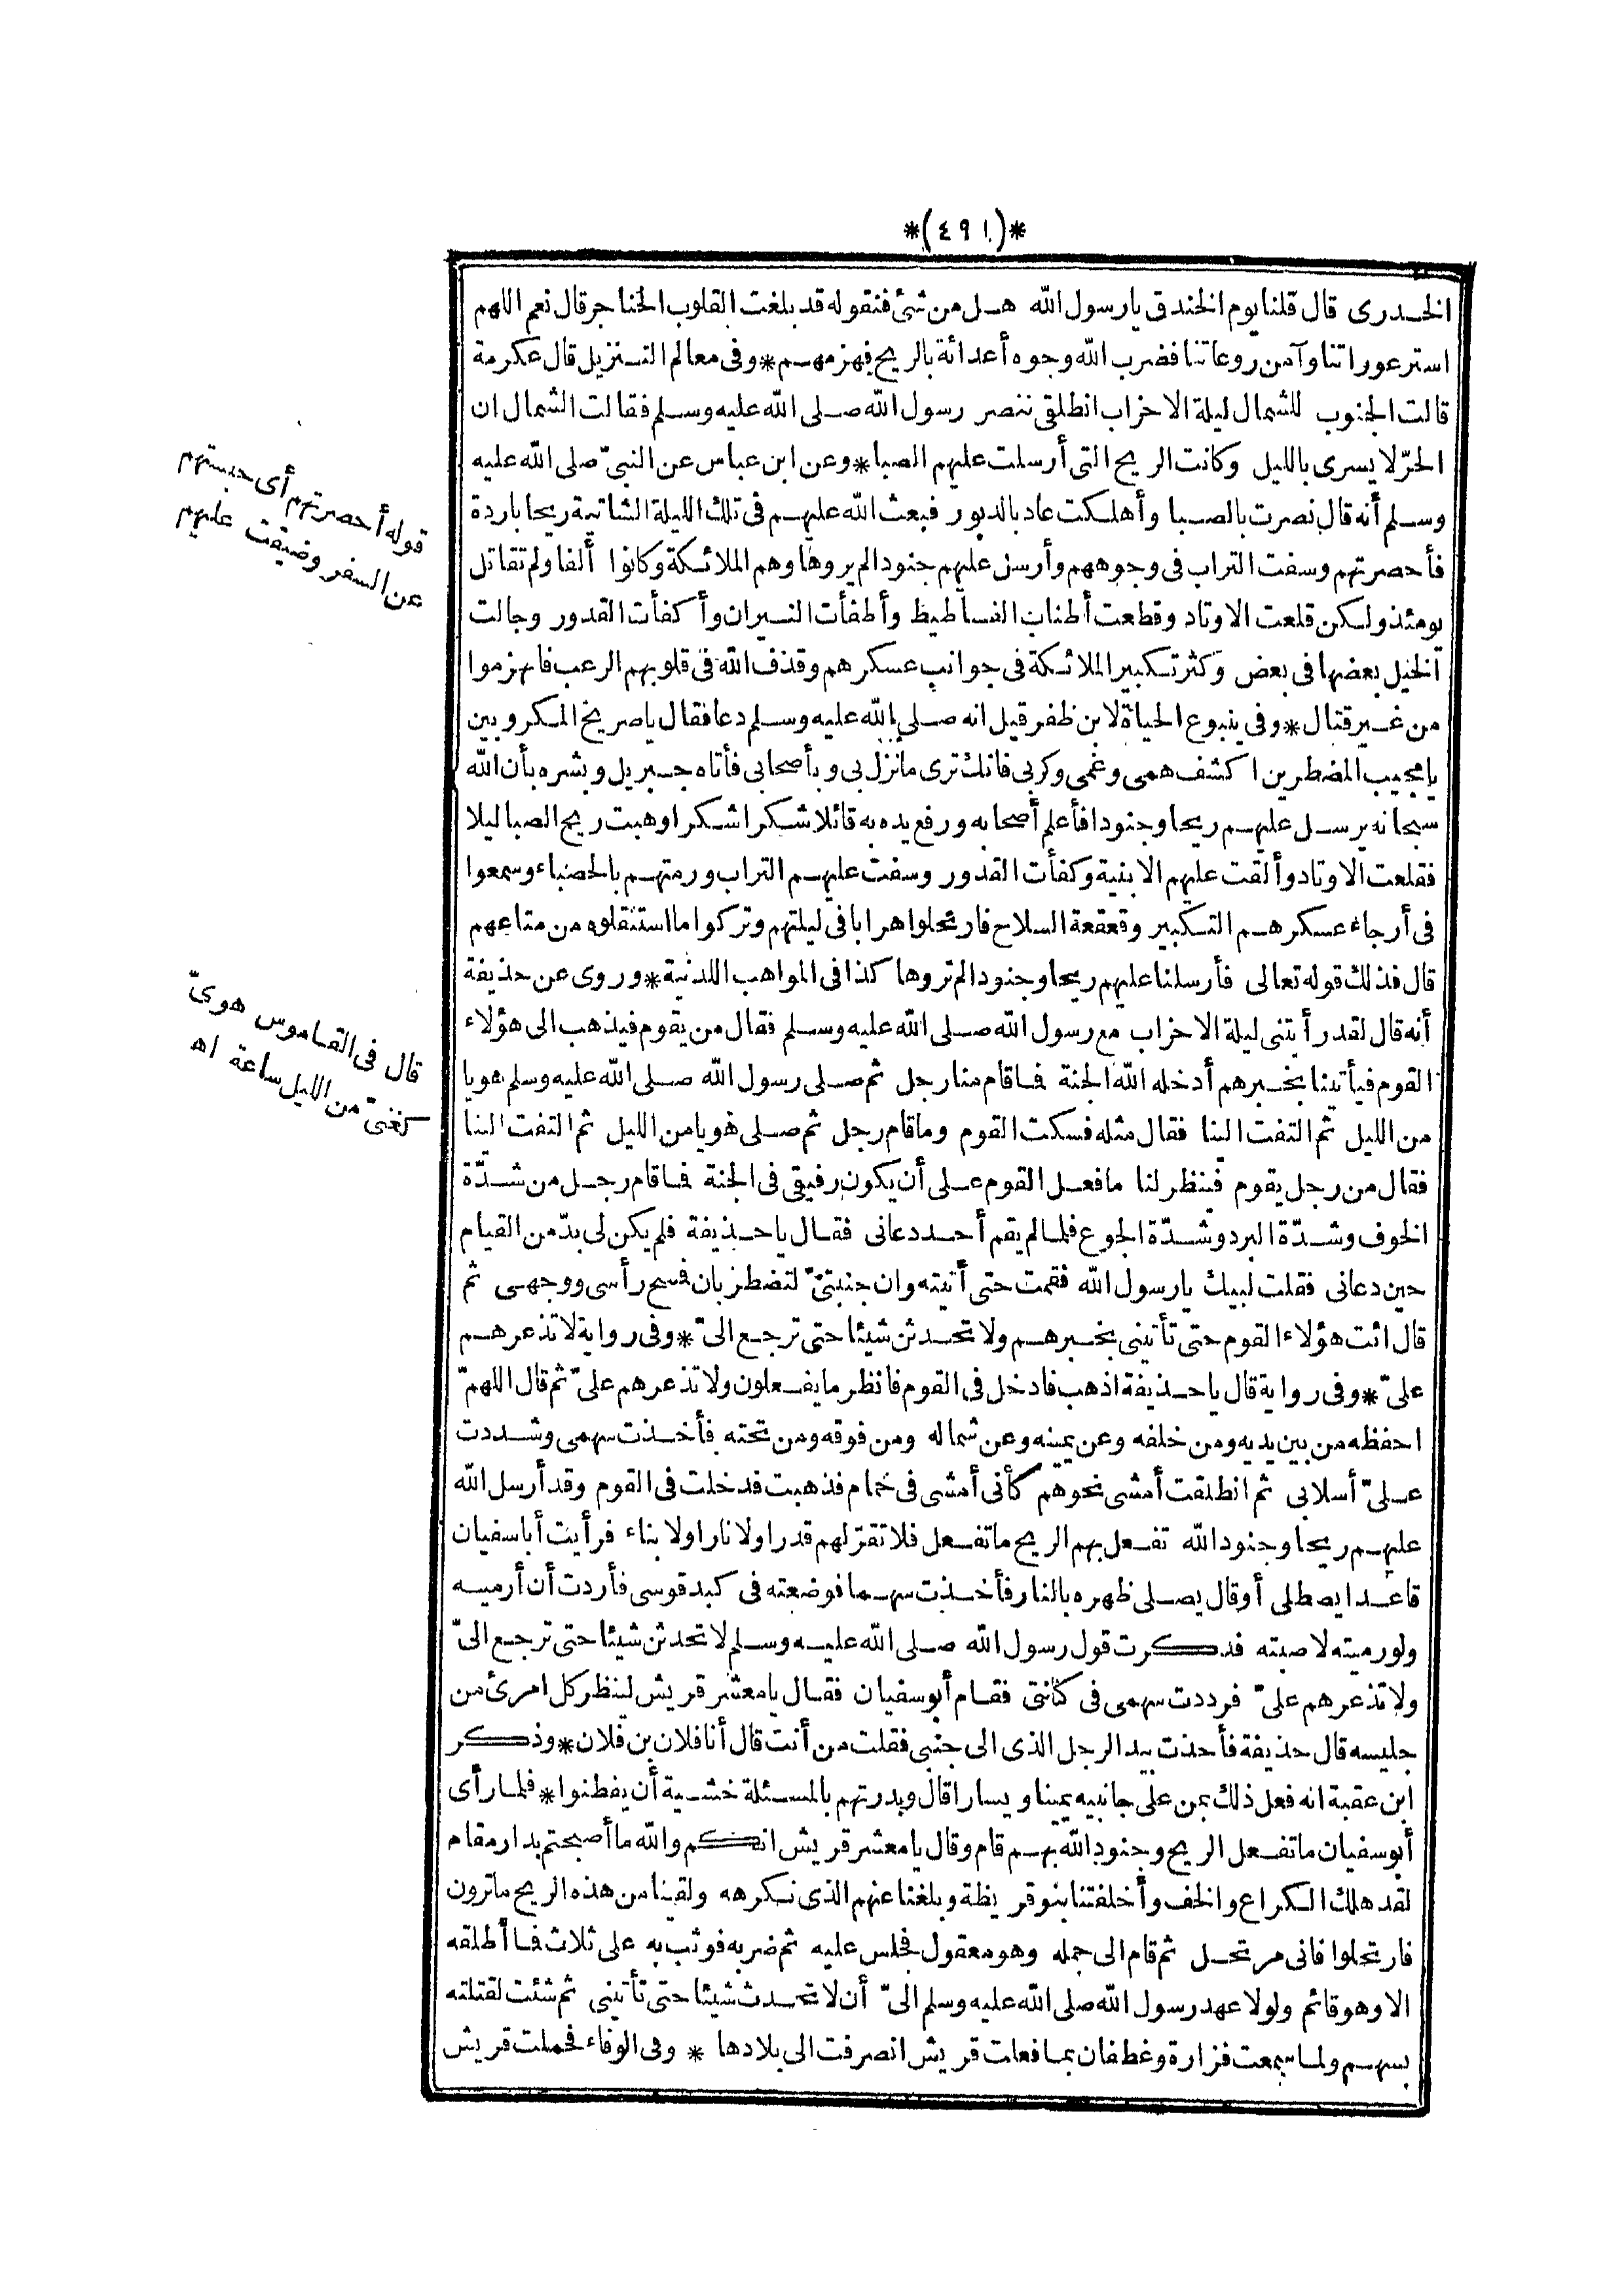 *(٤٩١)*
الخدرى قال قلنا يوم الخندق يا رسول الله هل من شئ فنقوله قد بلغت القلوب الحناجر قال نعم اللهم
استر عوراتنا وآمن روعاتنا فضرب الله وجوه أعدائة بالريح فهزمهم * وفى معالم التنزيل قال عكرمة
قالت الجنوب للشمال ليلة الاحزاب انطلقى ننصر رسول الله صلى الله عليه وسلم فقالت الشمال ان
الحرّ لا يسرى بالليل وكانت الريح التى أرسلت عليهم الصبا * وعن ابن عباس عن النبىّ صلى الله عليه
وسلم أنه قال نصرت بالصبا وأهلكت عاد بالدبور فبعث الله عليهم فى تلك الليلة الشاتية ريحا باردة
فأحصرتهم وسفت التراب فى وجوههم وأرسل عليهم جنودا لم يروها وهم الملائكة وكانوا ألفا ولم تقاتل
يومئذ ولكن قلعت الاوتاد وقطعت أطناب الفساطيط وأطفأت النيران وأكفأت القدور وجالت
الخيل بعضها فى بعض وكثر تكبير الملائكة فى جوانب عسكرهم وقذف الله فى قلوبهم الرعب فانهزموا
من غير قتال * وفى ينبوع الحياة لابن ظفر قيل انه صلى الله عليه وسلم دعا فقال يا صريخ المكروبين
يا مجيب المضطرين اكشف همى وغمى وكربى فانك ترى ما نزل بى وبأصحابى فأتاه جبريل وبشره بأن الله
سبحانه يرسل عليهم ريحا وجنودا فأعلم أصحابه ورفع يده به قائلا شكرا شكرا وهبت ريح الصبا ليلا
فقلعت الاوتاد وألقت عليهم الابنية وكفأت القدور وسفت عليهم التراب ورمتهم بالحصباء وسمعوا
فى أرجاء عسكرهم التكبير وقعقعة السلاح فارتحلوا هرابا فى ليلتهم وتركوا ما استثقلوه من متاعهم
قال فذلك قوله تعالى فأرسلنا عليهم ريحا وجنودا لم تروها كذا فى المواهب اللدنية * وروى عن حذيفة
أنه قال لقد رأيتنى ليلة الاحزاب مع رسول الله صلى الله عليه وسلم فقال من يقوم فيذهب الى هؤلاء
القوم فيأتينا بخبرهم أدخله الله الجنة فما قام منا رجل ثم صلى رسول الله صلى الله عليه وسلم هويا
من الليل ثم التفت الينا فقال مثله فسكت القوم وما قام رجل ثم صلى هويا من الليل ثم التفت الينا
فقال من رجل يقوم فينظر لنا ما فعل القوم على أن يكون رفيقى فى الجنة فما قام رجل من شدّة
الخوف وشدّة البرد وشدّة الجوع فلما لم يقم أحد دعانى فقال يا حذيفة فلم يكن لى بدّ من القيام
حين دعانى فقلت لبيك يا رسول الله فقمت حتى أتيته وان جنبتىّ لتضطربان فمسح رأسى ووجهى ثم
قال ائت هؤلاء القوم حتى تأتينى بخبرهم ولا تحدثن شيئا حتى ترجع الىّ * وفى رواية لا تذعرهم
علىّ * وفى رواية قال يا حذيفة اذهب فادخل فى القوم فانظر ما يفعلون ولا تذعرهم علىّ ثم قال اللهمّ
احفظه من بين يديه ومن خلفه وعن يمينه وعن شماله ومن فوقه ومن تحته فأخذت سهمى وشددت
علىّ أسلابى ثم انطلقت أمشى نحوهم كأنى أمشى فى حمام فذهبت فدخلت فى القوم وقد أرسل الله
عليهم ريحا وجنود الله تفعل بهم الريح ما تفعل فلا تقرّ لهم قدرا ولا نارا ولا بناء فرأيت أبا سفيان
قاعدا يصطلى أو قال يصلى ظهره بالنار فأخذت سهما فوضعته فى كبد قوسى فأردت أن أرميه
ولو رميته لاصبته فذكرت قول رسول الله صلى الله عليه وسلم لا تحدثن شيئا حتى ترجع الىّ
ولا تذعرهم علىّ فرددت سهمى فى كنانتى فقام أبو سفيان فقال يا معشر قريش لينظر كل امرئ من
جليسه قال حذيفة فأخذت بيد الرجل الذى الى جنبى فقلت من أنت قال أنا فلان بن فلان * وذكر
ابن عقبة انه فعل ذلك بمن على جانبيه يمينا ويسارا قال وبدرتهم بالمسئلة خشية أن يفطنوا * فلما رأى
أبو سفيان ما تفعل الريح وجنود الله بهم قام وقال يا معشر قريش انكم والله ما أصبحتم بدار مقام
لقد هلك الكراع والخف وأخلفتنا بنو قريظة وبلغنا عنهم الذى نكرهه ولقينا من هذه الريح ما ترون
فارتحلوا فانى مرتحل ثم قام الى جمله وهو معقول فجلس عليه ثم ضربه فوثب به على ثلاث فما أطلقه
الا وهو قائم ولولا عهد رسول الله صلى الله عليه وسلم الىّ أن لا تحدث شيئا حتى تأتينى ثم شئت لقتلته
بسهم ولما سمعت فزارة وغطفان بما فعلت قريش انصرفت الى بلادها * وفى الوفاء فحملت قريش
قوله أحصرتهم أى حبستهم
عن السفر وضيقت عليهم
قال فى القاموس هوىّ
كغنىّ من الليل ساعة اه